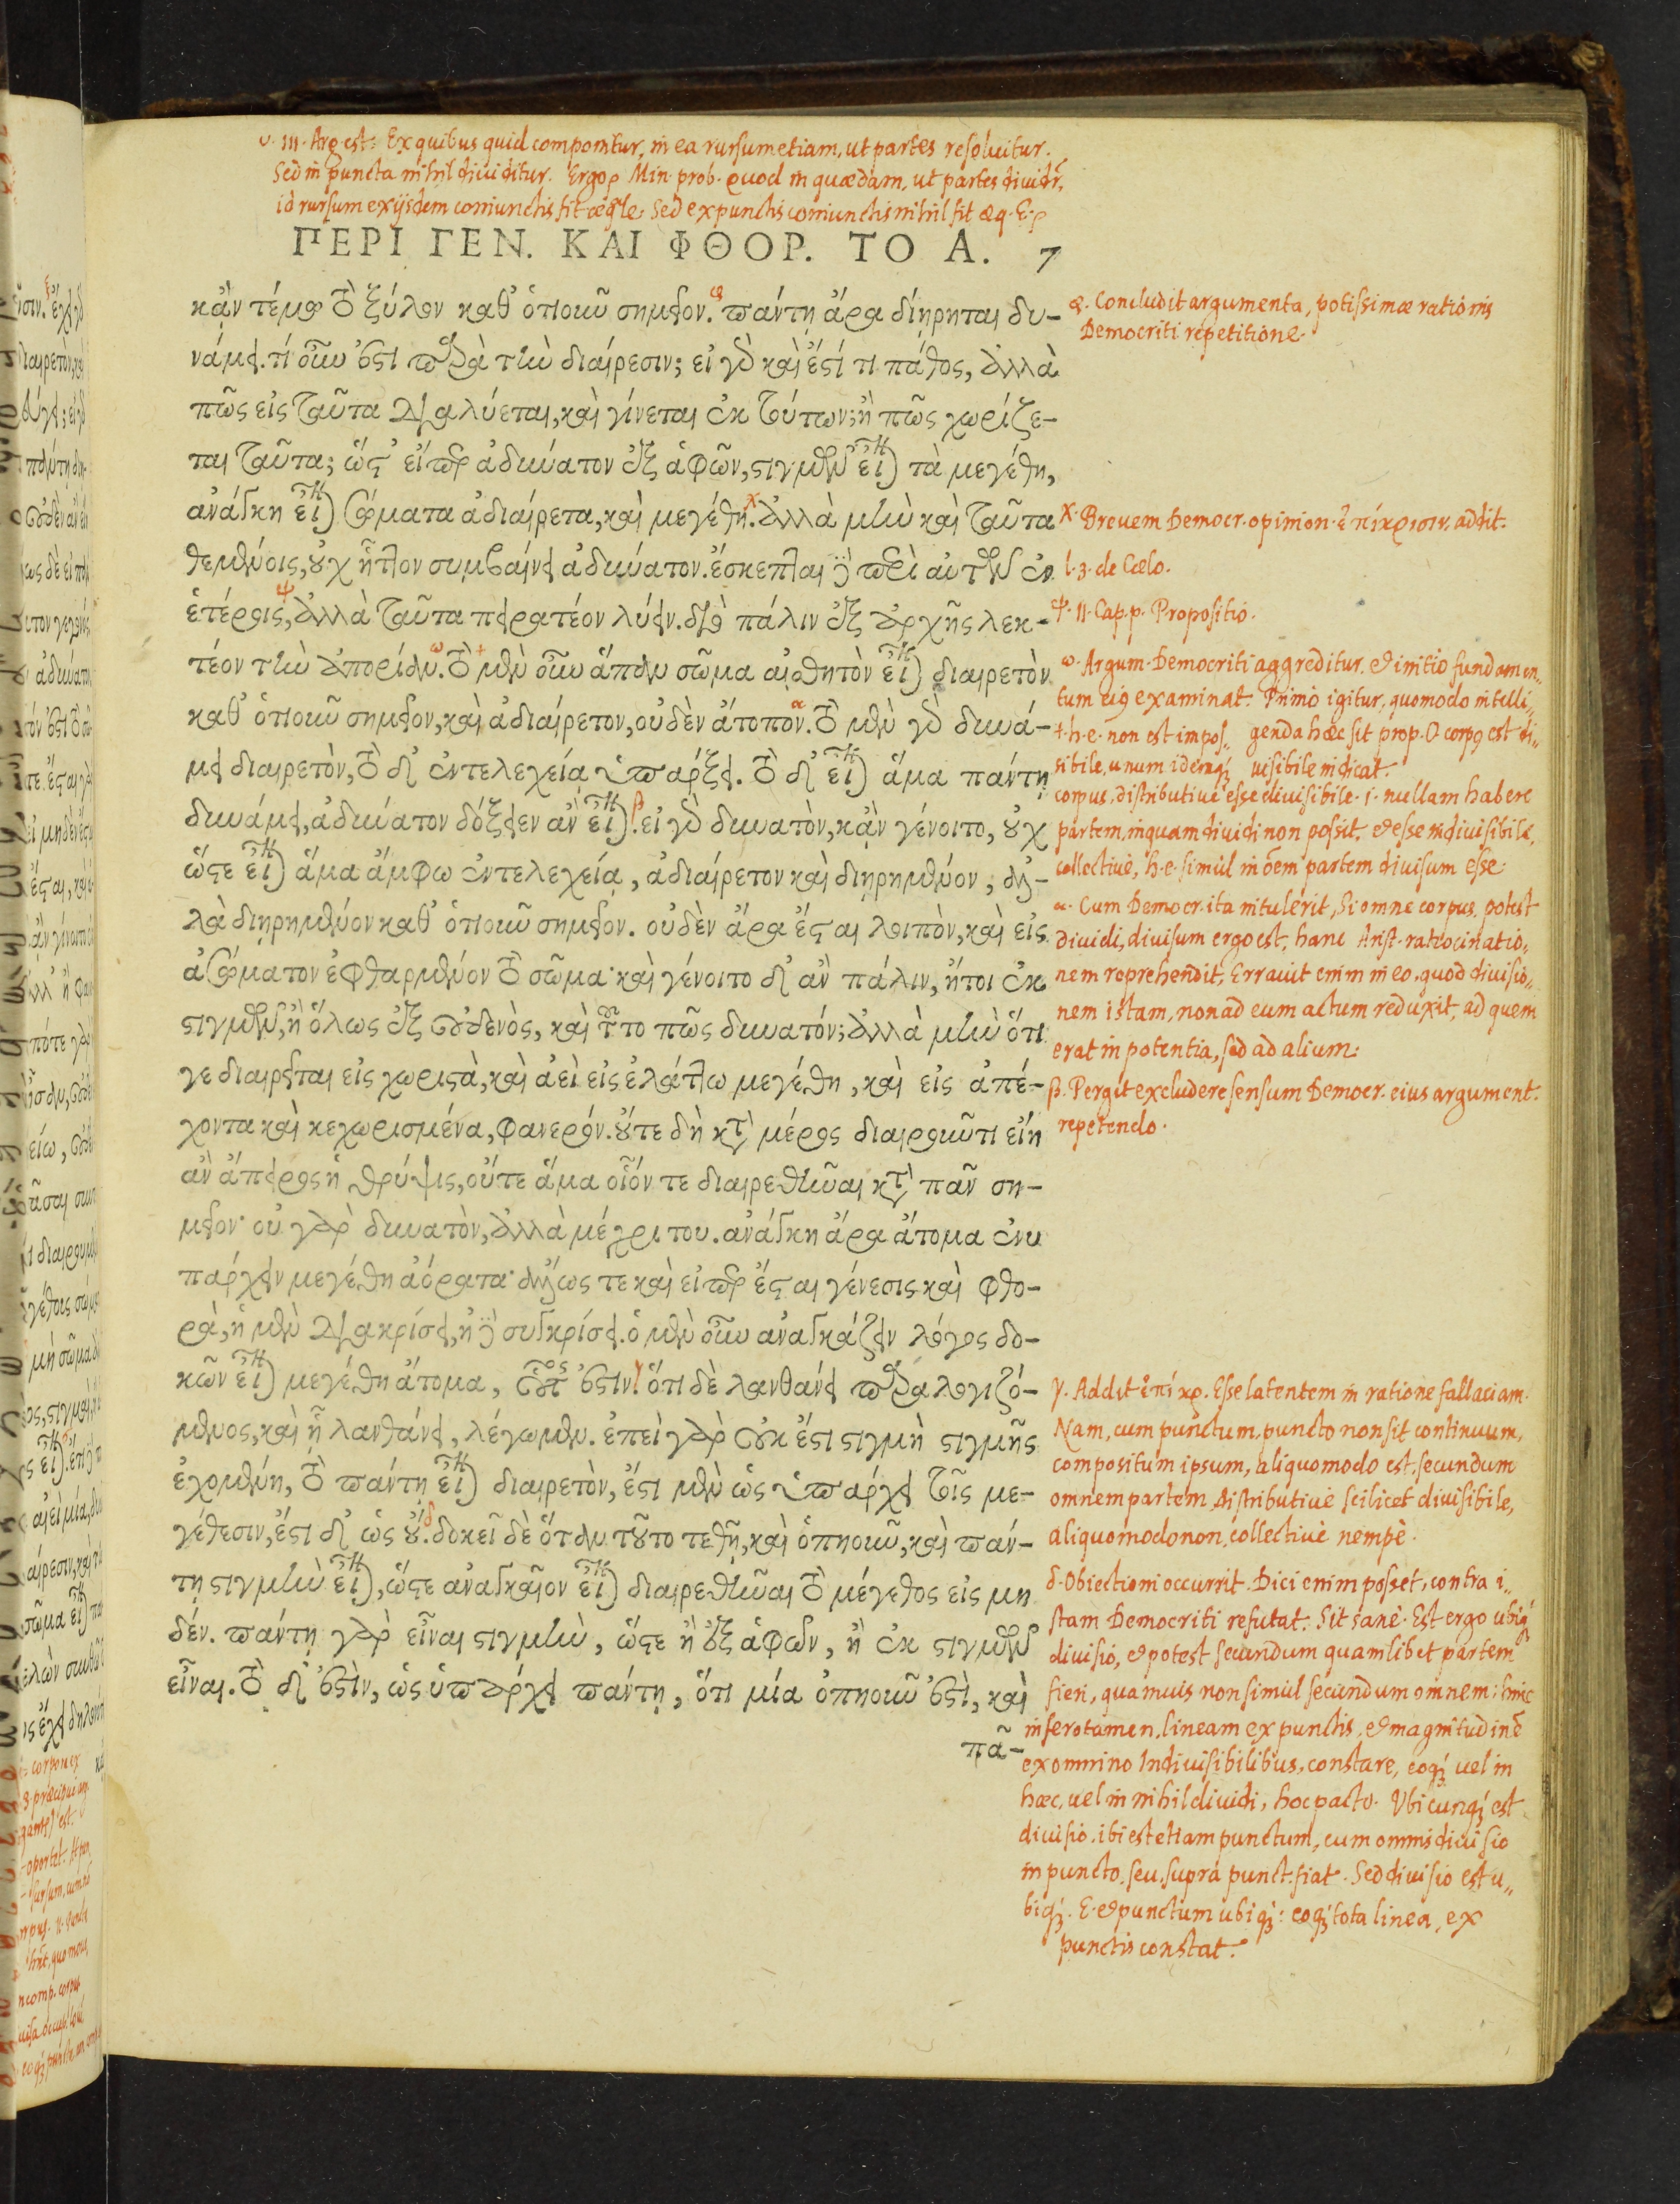 υ. III. Arg. est: Ex quibus quid componitur, in ea rursum etiam, ut partes resoluitur.
Sed in puncta nihil diuiditur. Ergo Min. prob. quod in quædam, ut partes diuidr,
id rursum ex ijsdem coniunctis fit æqle. Sed ex punctis coniunctis nihil fit æq. E.
ΠΕΡΙ ΓΕΝ. ΚΑΙ ΦΘΟΡ. ΤΟ Α. 7
κἂν τέμῃ τὸ ξύλον καθ' ὁτιοῦν σημεῖον. πάντῃ ἄρα διῄρηται δυ-
νάμει. τί οὖν ἐστι παρὰ τὴν διαίρεσιν; εἰ γὸ καὶ ἔστί τι πάθος, ἀλλὰ
πῶς εἰς ταῦτα διαλύεται, καὶ γίνεται ἐκ τούτων; ἢ πῶς χωρίζε-
ται ταῦτα; ὥστ' εἴπερ ἀδύνατον ἐξ ἁφῶν, στιγμῶν εἶναι τὰ μεγέθη,
ανάγκη εἶναι σώματα ἀδιαίρετα, καὶ μεγέθη. ἀλλὰ μὴν καὶ ταῦτα
θεμένοις, οὐχ ἧττον συμβαίνει ἀδύνατον. ἔσκεπται δὲ περὶ αὐτῶν ἐν
ἑτέροις, ἀλλὰ ταῦτα πειρατέον λύειν. διὸ πάλιν ἐξ ἀρχῆς λεκ-
τέον τὴν ἀπορίαν. τὸ μὲν οὖν ἅπαν σῶμα αἰσθητὸν εἶναι διαιρετὸν
καθ' ὁτιοῦν σημεῖον, καὶ ἀδιαίρετον, οὐδὲν ἄτοπον. τὸ μὲν γὸ δυνά-
μει διαιρετὸν, τὸ δ' ἐντελεχείᾳ ὑπάρξει. τὸ δ' εἶναι ἅμα πάντῃ
δυνάμει, ἀδύνατον δόξειεν ἂν εἶναι. εἰ γὸ δυνατὸν, κἂν γένοιτο, οὐχ
ὥστε εἶναι ἅμα ἄμφω ἐντελεχείᾳ, ἀδιαίρετον καὶ διῃρημένον, ἀλ-
λὰ διῃρημένον καθ' ὁτιοῦν σημεῖον. οὐδὲν ἄρα ἔσται λοιπὸν, καὶ εἰς
ἀσώματον ἐφθαρμένον τὸ σῶμα· καὶ γένοιτο δ' ἂν πάλιν, ἤτοι ἐκ
στιγμῶν, ἢ ὅλως ἐξ οὐδενὸς, καὶ τοῦτο πῶς δυνατόν; ἀλλὰ μὴν ὅτι
γε διαιρεῖται εἰς χωριστὰ, καὶ ἀεὶ εἰς ἐλάττω μεγέθη, καὶ εἰς ἀπέ-
χοντα καὶ κεχωρισμένα, φανερόν. οὔτε δὴ κατὰ μέρος διαιροῦντι εἴη
ἂν ἄπειρος ἡ θρύψις, οὔτε ἅμα οἷόν τε διαιρεθῆναι κατὰ πᾶν ση-
μεῖον· οὐ γὰρ δυνατὸν, ἀλλὰ μέχρι του. ἀνάγκη ἄρα ἄτομα ἐνυ
πάρχειν μεγέθη ἀόρατα· ἄλλως τε καὶ εἴπερ ἔσται γένεσις καὶ φθο-
ρὰ, ἡ μὲν διακρίσει, ἡ δὲ συγκρίσει. ὁ μὲν οὖν ἀναγκάζειν λόγος δο-
κῶν εἶναι μεγέθη ἄτομα, οὗτός ἐστιν. ὅτι δὲ λανθάνει παραλογιζό-
μενος, καὶ ᾗ λανθάνει, λέγωμεν. ἐπεὶ γὰρ οὐκ ἔστι στιγμὴ στιγμῆς
ἐχομένη, τὸ πάντῃ εἶναι διαιρετὸν, ἔστι μὲν ὡς ὑπάρχει τοῖς με-
γέθεσιν, ἔστι δ' ὡς οὔ. δοκεῖ δὲ ὅταν τοῦτο τεθῇ, καὶ ὁπηοῦν, καὶ πάν-
τῃ στιγμὴν εἶναι, ὥστε ἀναγκαῖον εἶναι διαιρεθῆναι τὸ μέγεθος εἰς μη
δέν. πάντῃ γὰρ εἶναι στιγμὴν, ὥστε ἢ ἐξ ἁφῶν, ἢ ἐκ στιγμῶν
εἶναι. τὸ δ' ἐστὶν, ὡς ὑπάρχει πάντῃ, ὅτι μία ὁπηοῦν ἐστὶ, καὶ
πᾶ-
φ. Concludit argumenta, potissimæ rationis
Democriti repetitione.
χ. Breuem Democr. opinion. ἐπίκρισιν, addit.
l. 3. de Cœlo.
ψ. II. Cap. p. Propositio.
ω. Argum. Democriti aggreditur, et initio fundamen„
tum eiq examinat. Primò igitur, quomodo intelli„
genda hæc sit prop. O corpq est di„
uisibile indicat.
+. h. e. non est impos„
sibile, unum idemq;
corpus, distributiuè esse diuisibile. i. nullam habere
partem, in quam diuidi non possit, et esse indiuisibile,
collectiuè, h. e. simùl in oem partem diuisum esse.
α. Cum Democr. ita intulerit, Si omne corpus potest
diuidi, diuisum ergo est, hanc Arist. ratiocinatio„
nem reprehendit. Errauit enim in eo, quod diuisio„
nem istam, non ad eum actum reduxit, ad quem
erat in potentia, sed ad alium.
β. Pergit excludere sensum Democr. eius argument.
repetendo.
γ. Addit ἐπίκρ. Esse latentem in ratione fallaciam.
Nam, cum punctum, puncto non sit continuum,
compositum ipsum, aliquomodo est, secundum
omnem partem, distributiuè scilicet diuisibile,
aliquomodo non, collectiuè nempè.
δ. Obiectioni occurrit. Dici enim posset, contra i„
stam Democriti refutat. Sit sanè. Est ergo ubiq;
diuisio, et potest secundum quamlibet partem
fieri, quamuis non simùl secundum omnem: hinc
infero tamen, lineam ex punctis, et magnitudinē
ex omnino Indiuisibilibus, constare, eoq; uel in
hæc, uel in nihil diuidi, hoc pacto. Vbicunq; est
diuisio, ibi est etiam punctum, cum omnis diuisio
in puncto, seu, suprà punct. fiat. Sed diuisio est u„
biq;. E. et punctum ubiq;: eoq; tota linea, ex
punctis constat.